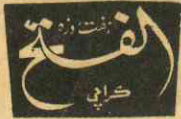 ہفت روزہ
الفتح
کراچی